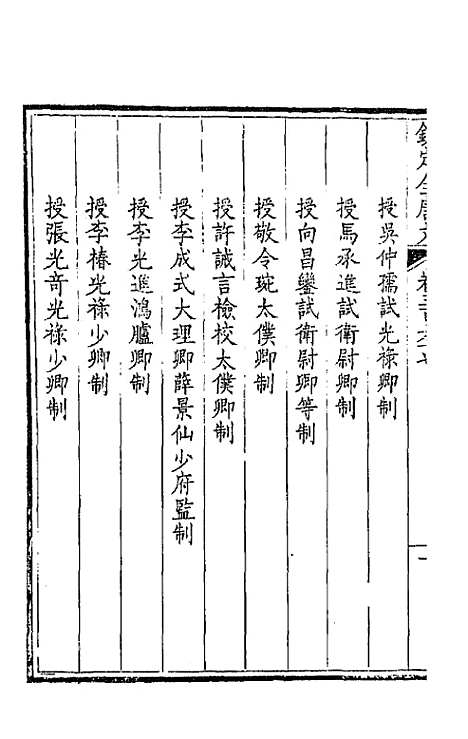 欽定全唐文 卷三百六十七
授吳仲孺試光祿卿制
授馬承進試衛尉卿制
授向昌鑾試衛尉卿等制
授敬令琬太僕卿制
授許誠言檢校太僕卿制
授李成式大理卿薛景仙少府監制
授李光進鴻臚卿制
授李椿光祿少卿制
授張光奇光祿少卿制